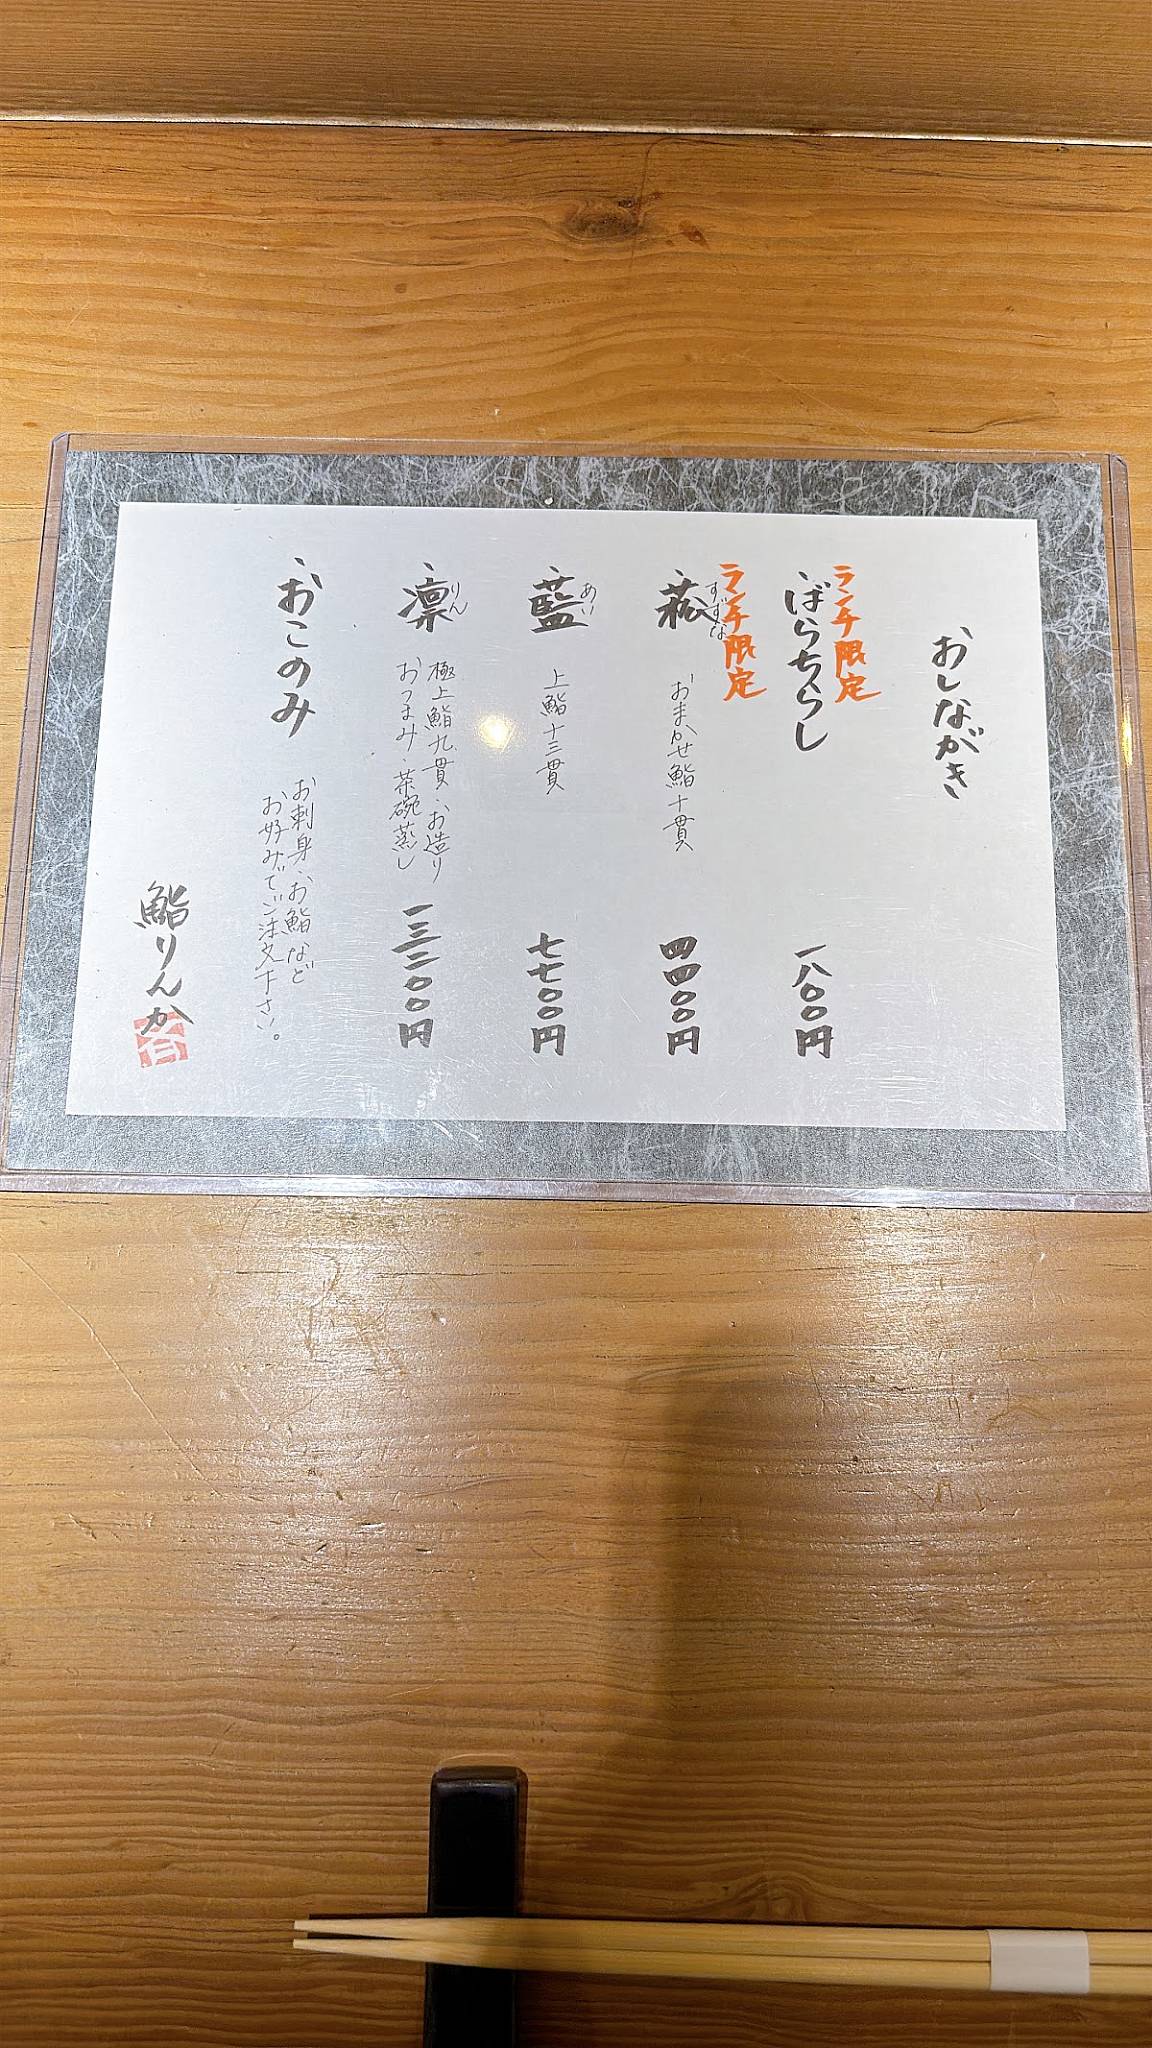 おしながき
ランチ限定
、ばらちらし
一八〇〇円
ランチ限定
、菘
すずな
おまかせ鮨十貫
四四〇〇円
、藍
あい
上鮨十三貫
七七〇〇円
、凛
りん
極上鮨九貫、お造り
おつまみ、茶碗蒸し
一三二〇〇円
、おこのみ
お刺身、お鮨など
お好みでご注文下さい。
鮨りんか